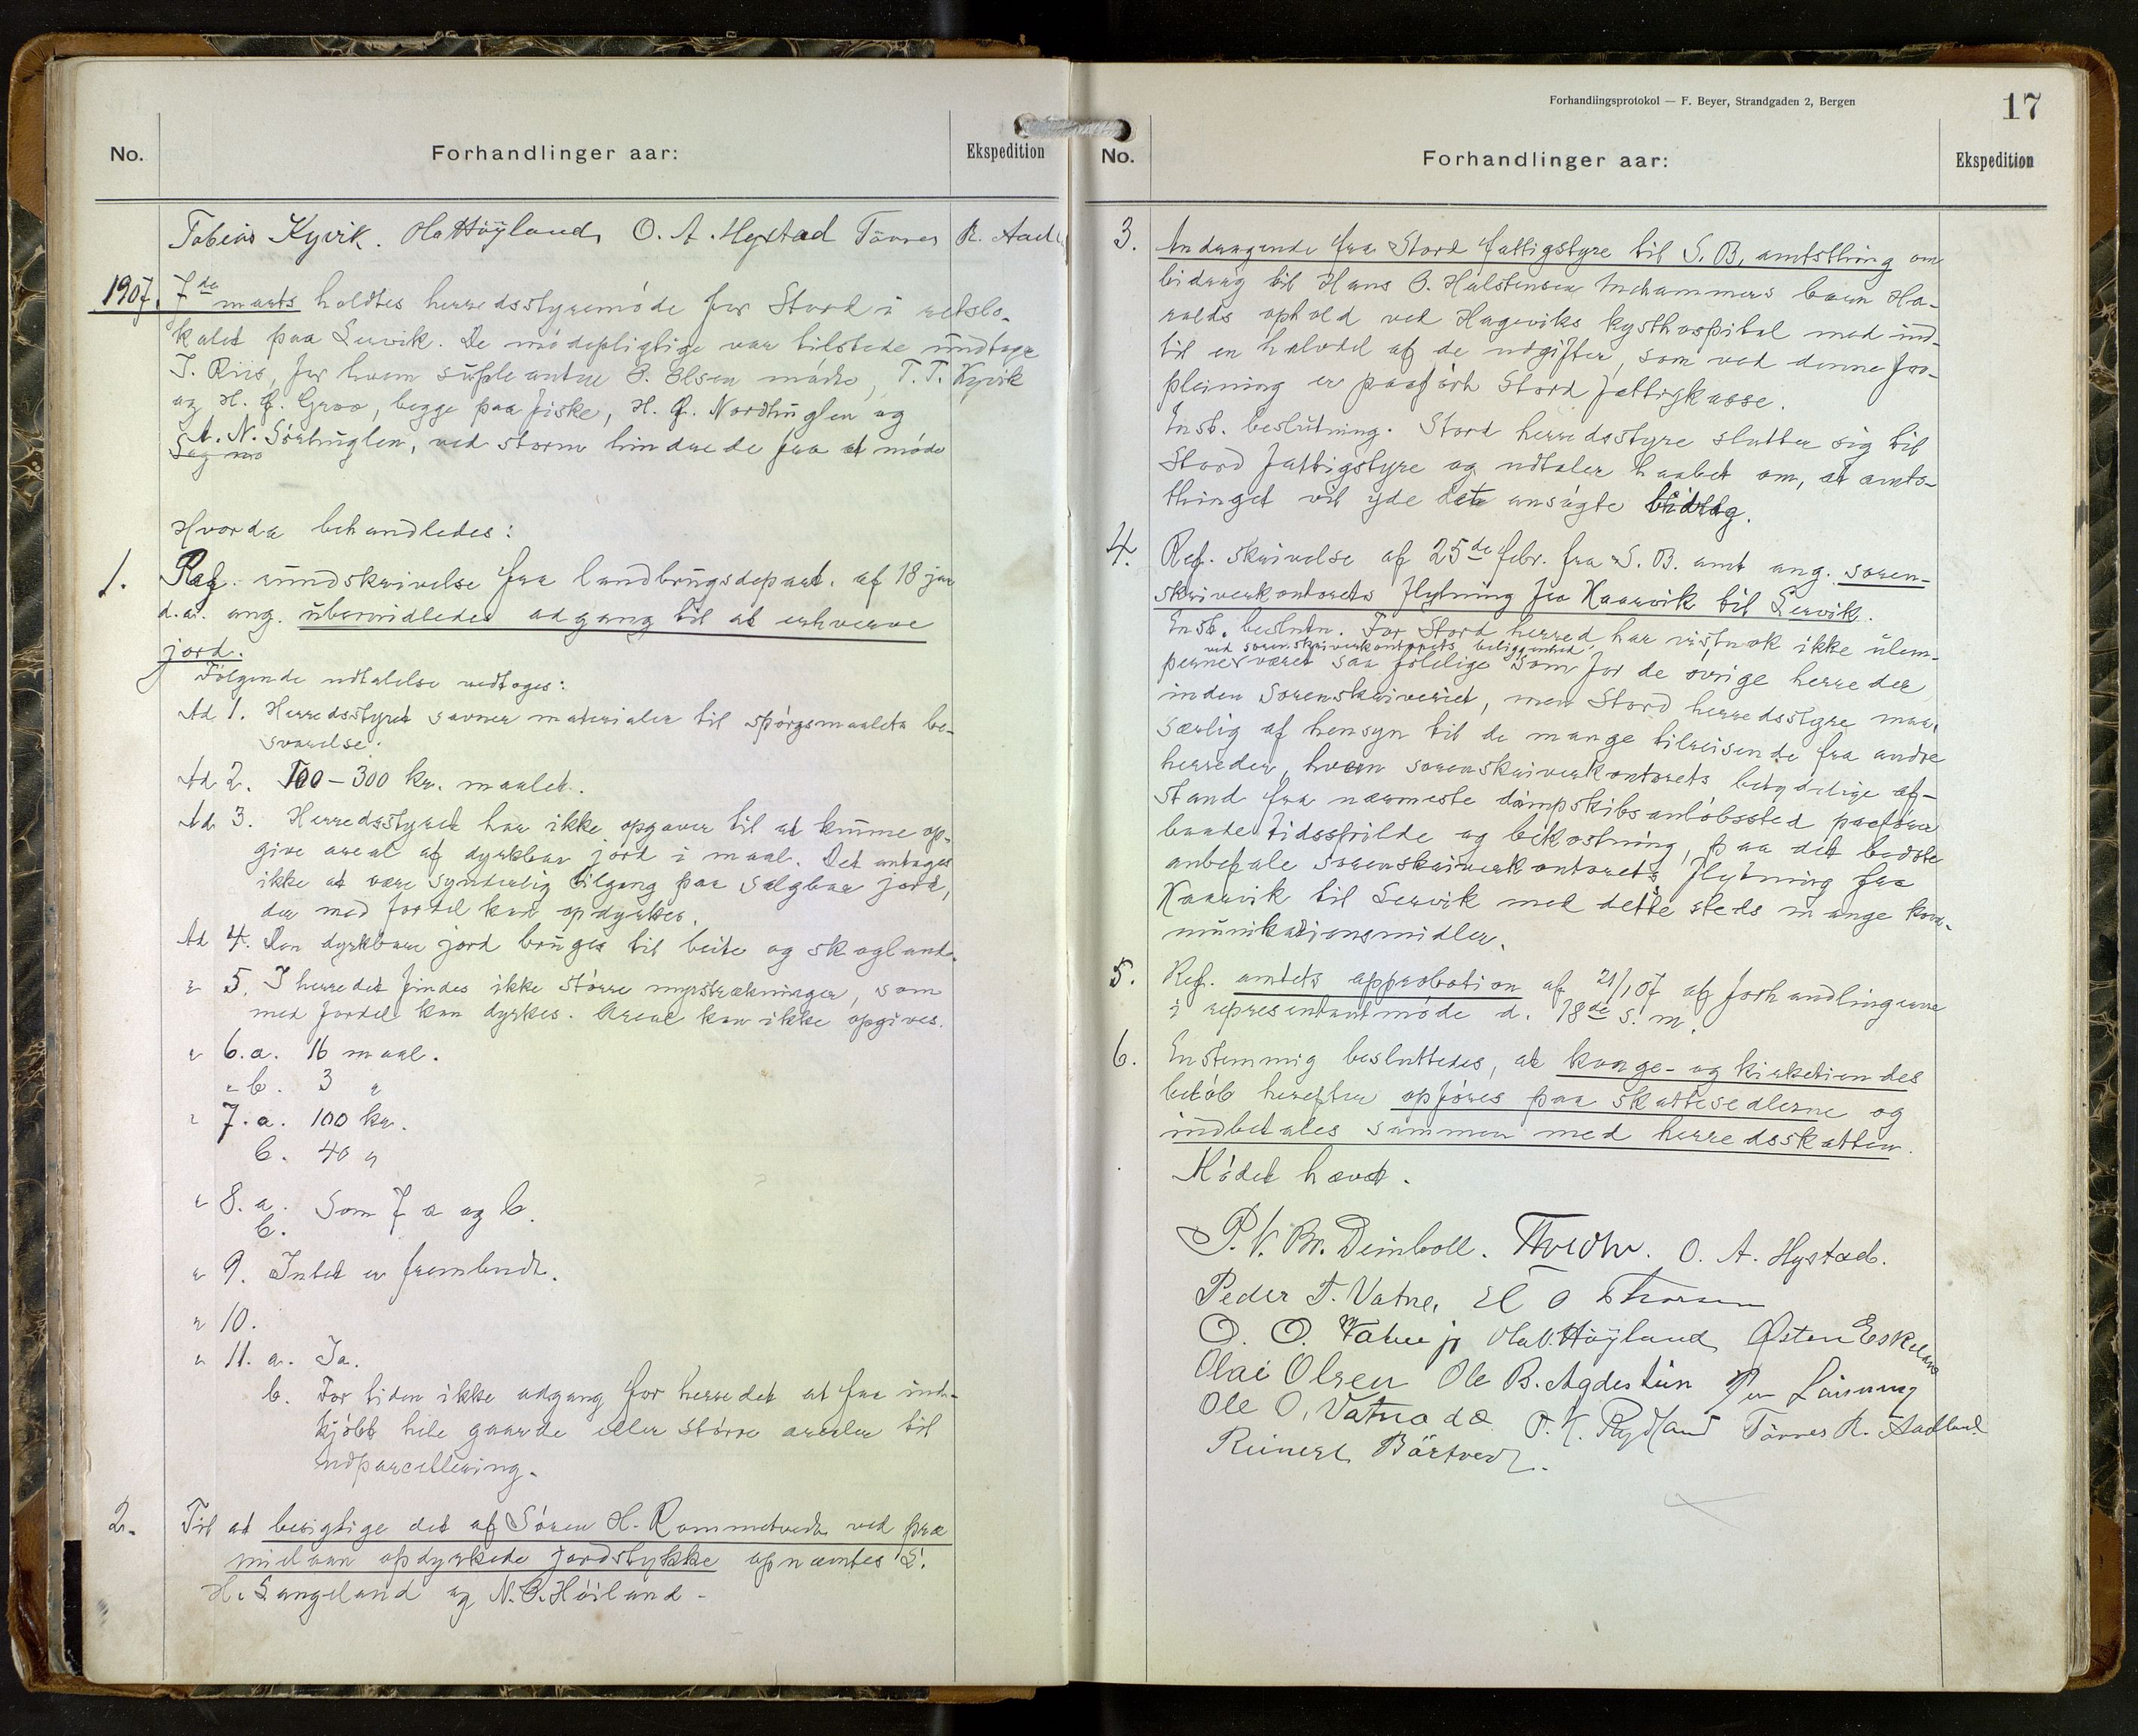 No.
Forhandlinger aar:
Ekspedition
Tobias Kyvik. Ola Höÿland, O. A. Hystad Tönnes R. Aadl
1907. 7de marts holdtes herredsstyremóde for Stord i retslo-
kalet paa Lervik. De módepligtige var tilstede undtagr
J. Riis, for hvem supleanten O. Olsen mádte, T. T. Kyvik
og H. G. Groo, begge paa fiske, H. G. Nordhuglen og
A. N. Sórhuglen, ved storm hindrede fra at móde
Sag no
Hvorda behandledes:
1. Ref. rundskrivelse fra landbrugsdepart. af 18 jan
d.a. ang. ubemidledes adgang til at erhverve
jord.
Fólgende udtalelse vedtoges:
Ad 1. Herredsstyret savner materialer til spórgsmaalets be-
svarelse.
Ad 2. 100-300 kr. maalet.
Ad 3. Herredsstyret har ikke opgaver til at kunne op-
give areal af dyrkbar jord i maal. Det antages
ikke at være synderlig tilgang paa sælgbar jord,
der med fordel kan opdyrkes.
Ad 4. Den dyrkbare jord bruges til beite og skogland.
" 5. I herredet findes ikke större myrstrækninger, som
med fordel kan dyrkes. Areal kan ikke opgives.
" 6.a. 16 maal.
" b. 3 "
" 7.a. 100 kr.
b. 40 "
" 8. a. Som 7 a og b.
b.
" 9. Intet er frembudt.
" 10.
" 11. a. Ja.
b. For tiden ikke adgang for herredet at faa ind-
kjóbt hele gaarde eller stórre arealer til
udparcellering.
2. Til at besigtige det af Sóren H. Rommetvedt ved præ
mielaan opdyrkede jordstykke opnævntes S.
H. Langeland og N. O. Hóiland.
Forhandlingsprotokol — F. Beyer, Strandgaden 2, Bergen
17
No.
Forhandlinger aar:
Ekspedition
3. Andragende fra Stord fattigstyre til S. B. amtsthing om
bidrag til Hans O. Halstensen Indrammers barn Ha-
ralds ophold ved Hageviks kysthospital med ind-
til en halvdel af de udgifter, som ved denne for-
pleining er paafórt Stord fattigkasse.
Enst. beslutning. Stord herredsstyre slutter sig til
Stord fattigstyre og udtaler haabet om, at amts-
thinget vil yde det ansógte bidrag.
4. Ref. skrivelse af 25de febr. fra S. B. amt ang. soren-
skriverkontorets flytning fra Kaarvik til Lervik.
Enst. beslutn. For Stord herred har vistnok ikke ulem-
ved sorenskriverkontorets beliggenhed
perne været saa fólelige som for de óvrige herreder
inden sorenskriveriet, men Stord herredsstyre maa,
særlig af hensyn til de mange tilreisende fra andre
herreder, hvem sorenskriverkontorets betydelige af-
stand fra nærmeste dampskibsanlóbssted paafórer
baade tidsspilde og bekostning, paa det bedste
anbefale sorenskriverkontorets flytning fra
Kaarvik til Lervik med dette steds mange kom-
munikationsmidler.
5. Ref. amtets approbation af 21/1 07 af forhandlingerne
i representantmóde d. 18de s. m.
6. Enstemmig besluttedes, at konge- og kirketiendes
belób herefter opfóres paa skattesedlerne og
indbetales sammen med herredsskatten.
Módet hævet.
P. V. Br. Deinboll. O. A. Hystad.
Peder T. Vatne, El O Thorsen
O. O. Vatne jr Ola V. Höÿland, Østen Eskeland
Olai Olsen Ole B. Agdestein Per Lönning
Ole O. Vatna dæ O. K. Rydland Tönnes R. Aadland
Reinert Börtvedt.